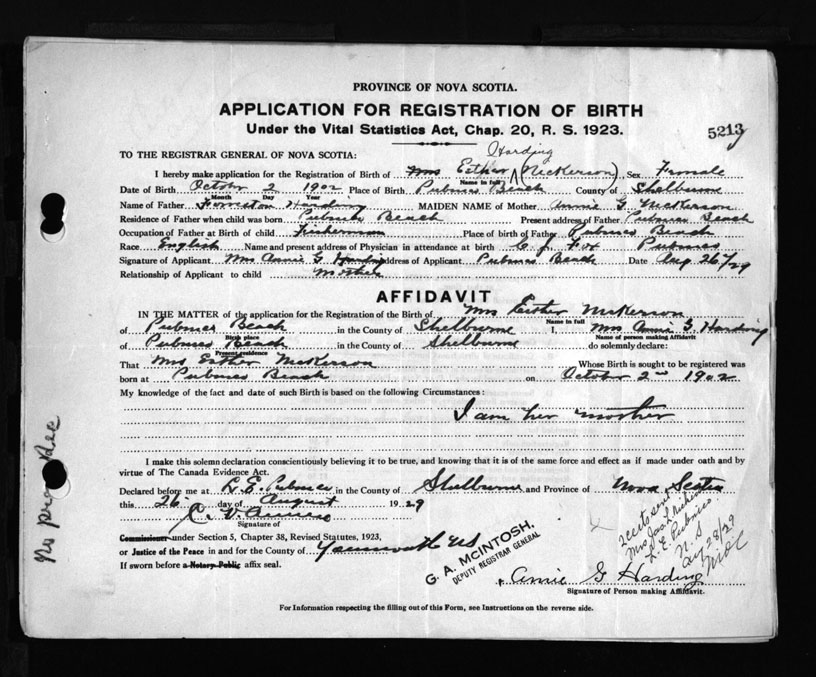 PROVINCE OF NOVA SCOTIA.
APPLICATION FOR REGISTRATION OF BIRTH
Under the Vital Statistics Act, Chap. 20, R. S. 1923.
5213
TO THE REGISTRAR GENERAL OF NOVA SCOTIA:
Harding
I hereby make application for the Registration of Birth of Mrs Esther (Nickerson) Sex Female
Name in full
Date of Birth October 2 1902 Place of Birth Pubnico Beach County of Shelburne
Month Day Year
Name of Father Harding MAIDEN NAME of Mother Annie G Nickerson
Residence of Father when child was born Pubnico Beach Present address of Father Pubnico Beach
Occupation of Father at Birth of child Fisherman Place of birth of Father Pubnico Beach
Race English Name and present address of Physician in attendance at birth C. J. Fox Pubnico
Signature of Applicant Mrs Annie G Harding Address of Applicant Pubnico Beach Date Aug 26/29
Relationship of Applicant to child Mother
AFFIDAVIT
IN THE MATTER of the application for the Registration of the Birth of Mrs Esther Nickerson
Name in full
of Pubnico Beach in the County of Shelburne I, Mrs Annie G. Harding
Birth place Name of person making Affidavit
of Pubnico Beach in the County of Shelburne do solemnly declare:
Present residence
That Mrs Esther Nickerson Whose Birth is sought to be registered was
born at Pubnico Beach on October 2nd 1902
My knowledge of the fact and date of such Birth is based on the following Circumstances:
I am her mother
I make this solemn declaration conscientiously believing it to be true, and knowing that it is of the same force and effect as if made under oath and by
virtue of The Canada Evidence Act.
Declared before me at L. E. Pubnico in the County of Shelburne and Province of Nova Scotia
this 26 day of August 1929
C. V.
Signature of
Commissioner under Section 5, Chapter 38, Revised Statutes, 1923,
or Justice of the Peace in and for the County of Yarmouth NS
If sworn before a Notary Public affix seal.
G. A. McINTOSH,
DEPUTY REGISTRAR GENERAL
Mrs
L. E. Pubnico
N. S
Aug 28/29
Annie G Harding
Signature of Person making Affidavit.
For Information respecting the filling out of this Form, see Instructions on the reverse side.
No prev Rec